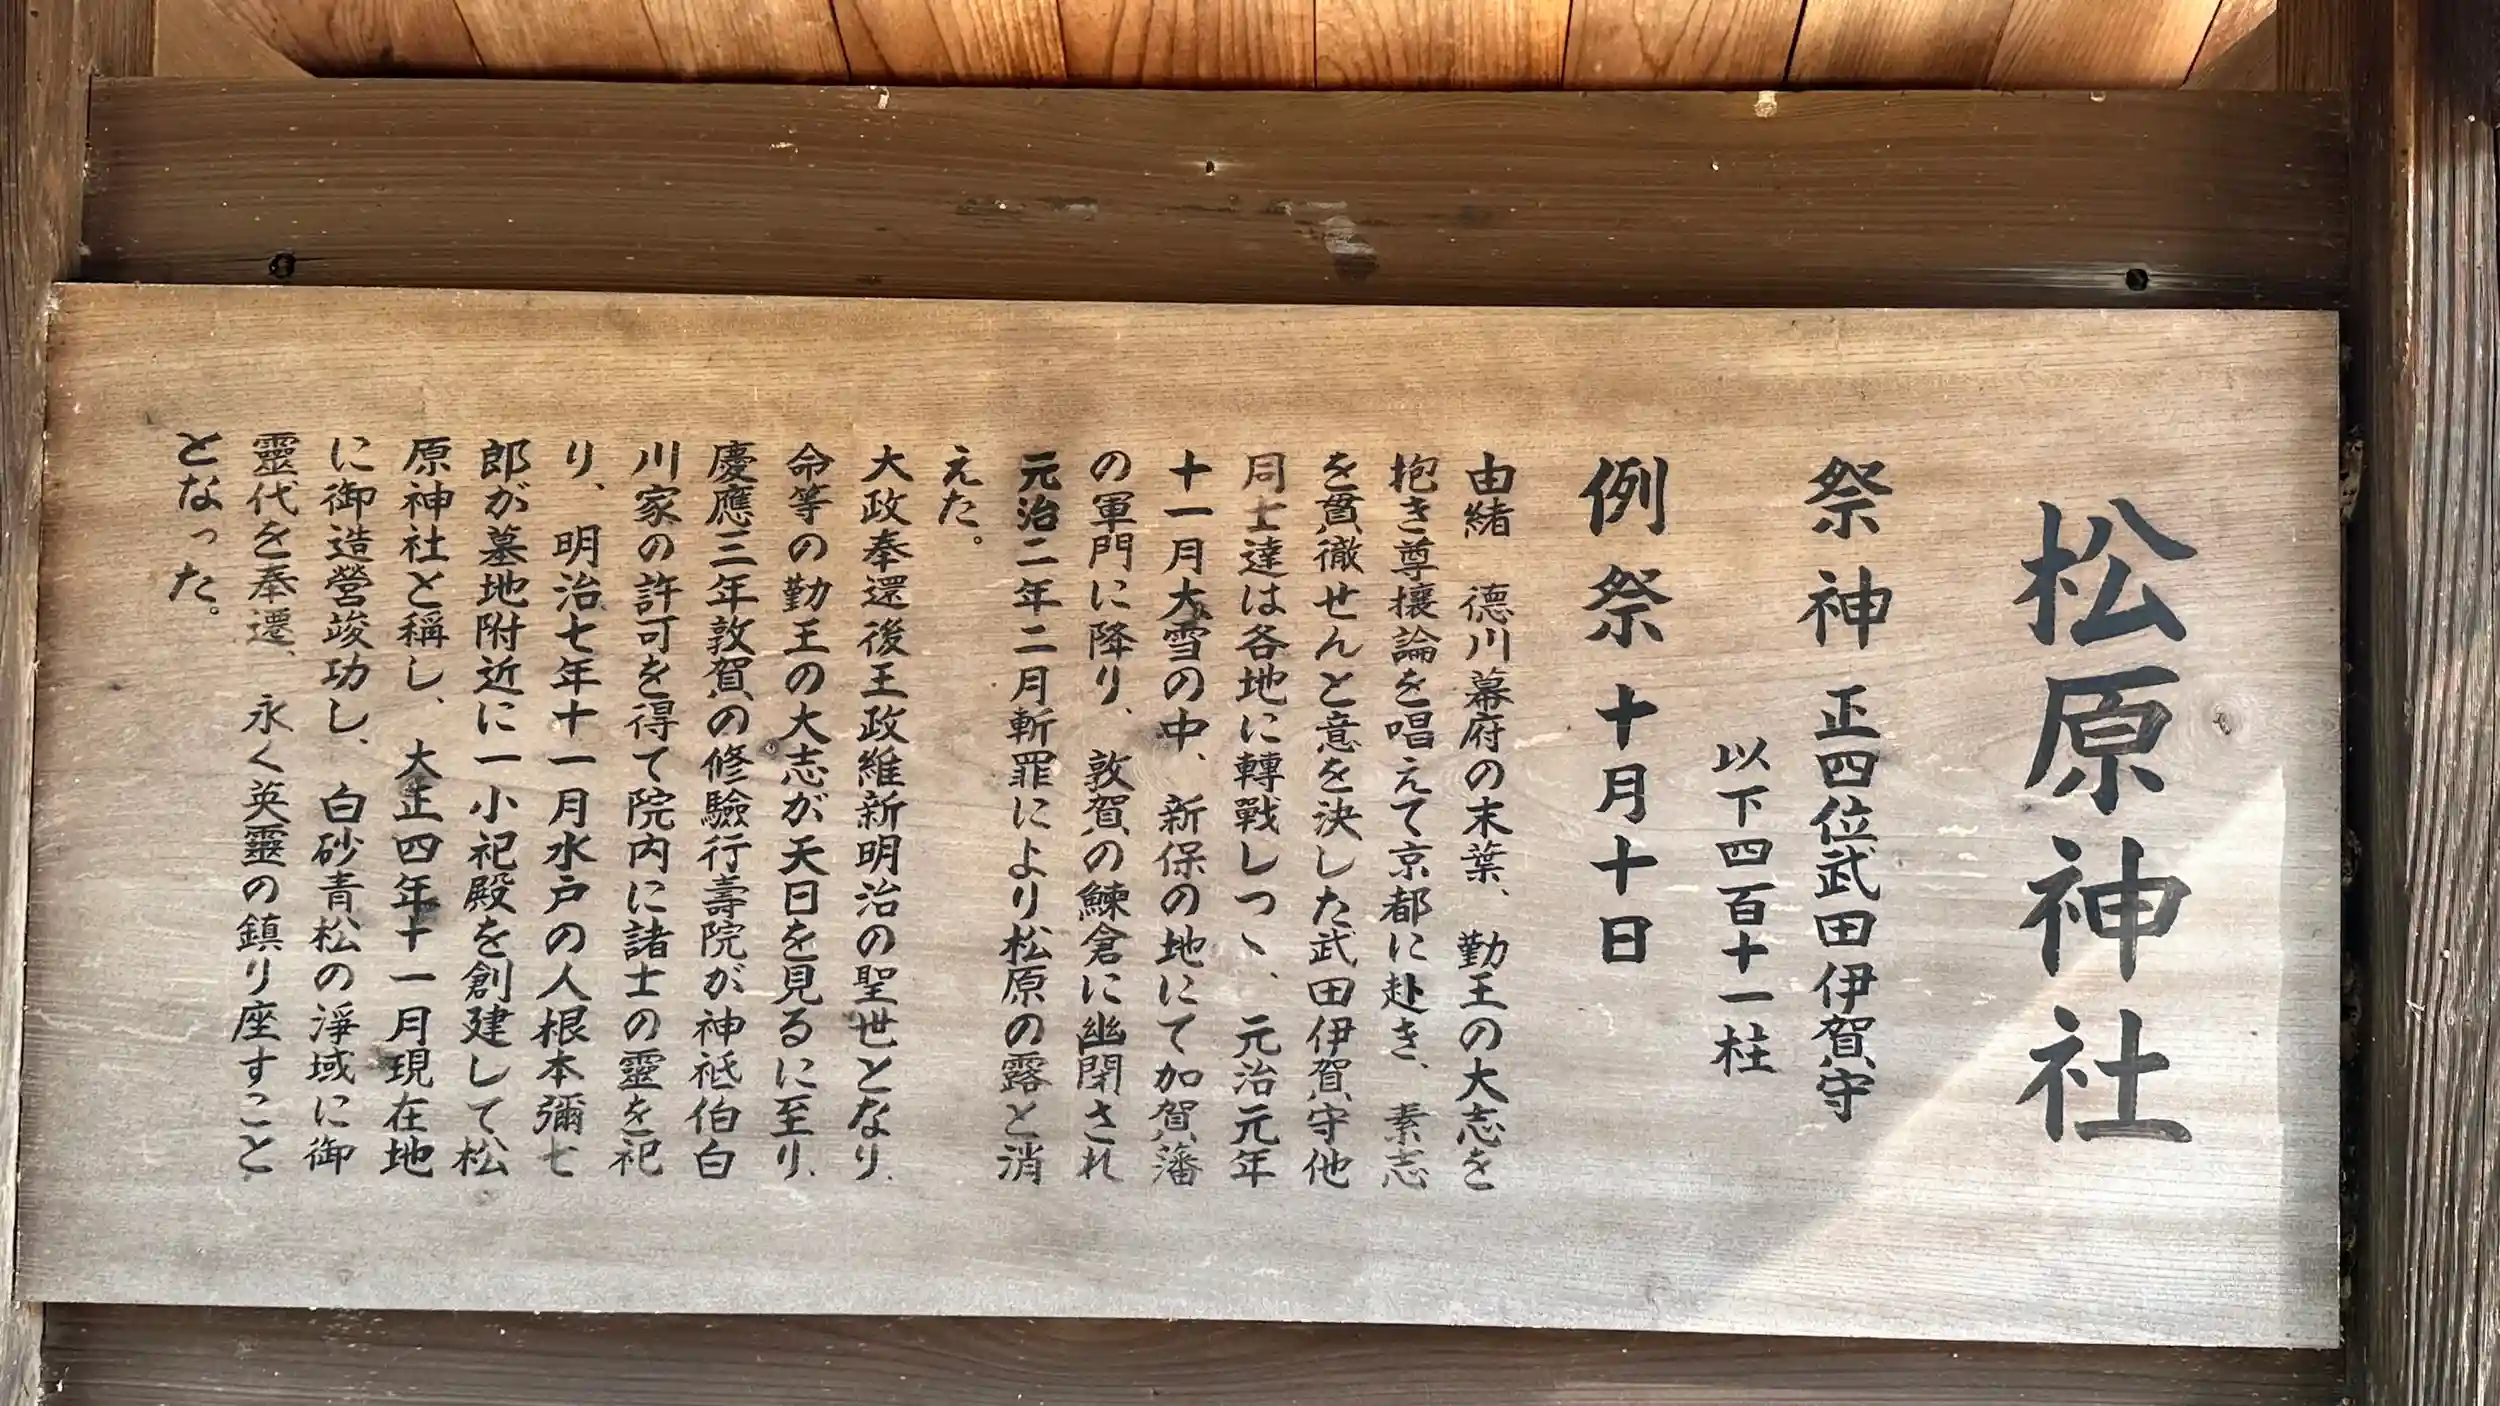 松原神社
祭神 正四位武田伊賀守
以下四百十一柱
例祭 十月十日
由緒 德川幕府の末葉、勤王の大志を
抱き尊攘論を唱えて京都に赴き、素志
を貫徹せんと意を決した武田伊賀守他
同士達は各地に轉戰しつヽ、元治元年
十一月大雪の中、新保の地にて加賀藩
の軍門に降り、敦賀の鰊倉に幽閉され
元治二年二月斬罪により松原の露と消
えた。
大政奉還後王政維新明治の聖世となり、
命等の勤王の大志が天日を見るに至り、
慶應三年敦賀の修驗行壽院が神祇伯白
川家の許可を得て院内に諸士の靈を祀
り、明治七年十一月水戸の人根本彌七
郎が墓地附近に一小祀殿を創建して松
原神社と稱し、大正四年十一月現在地
に御造營竣功し、白砂青松の淨域に御
靈代を奉遷、永く英靈の鎮り座すこと
となった。